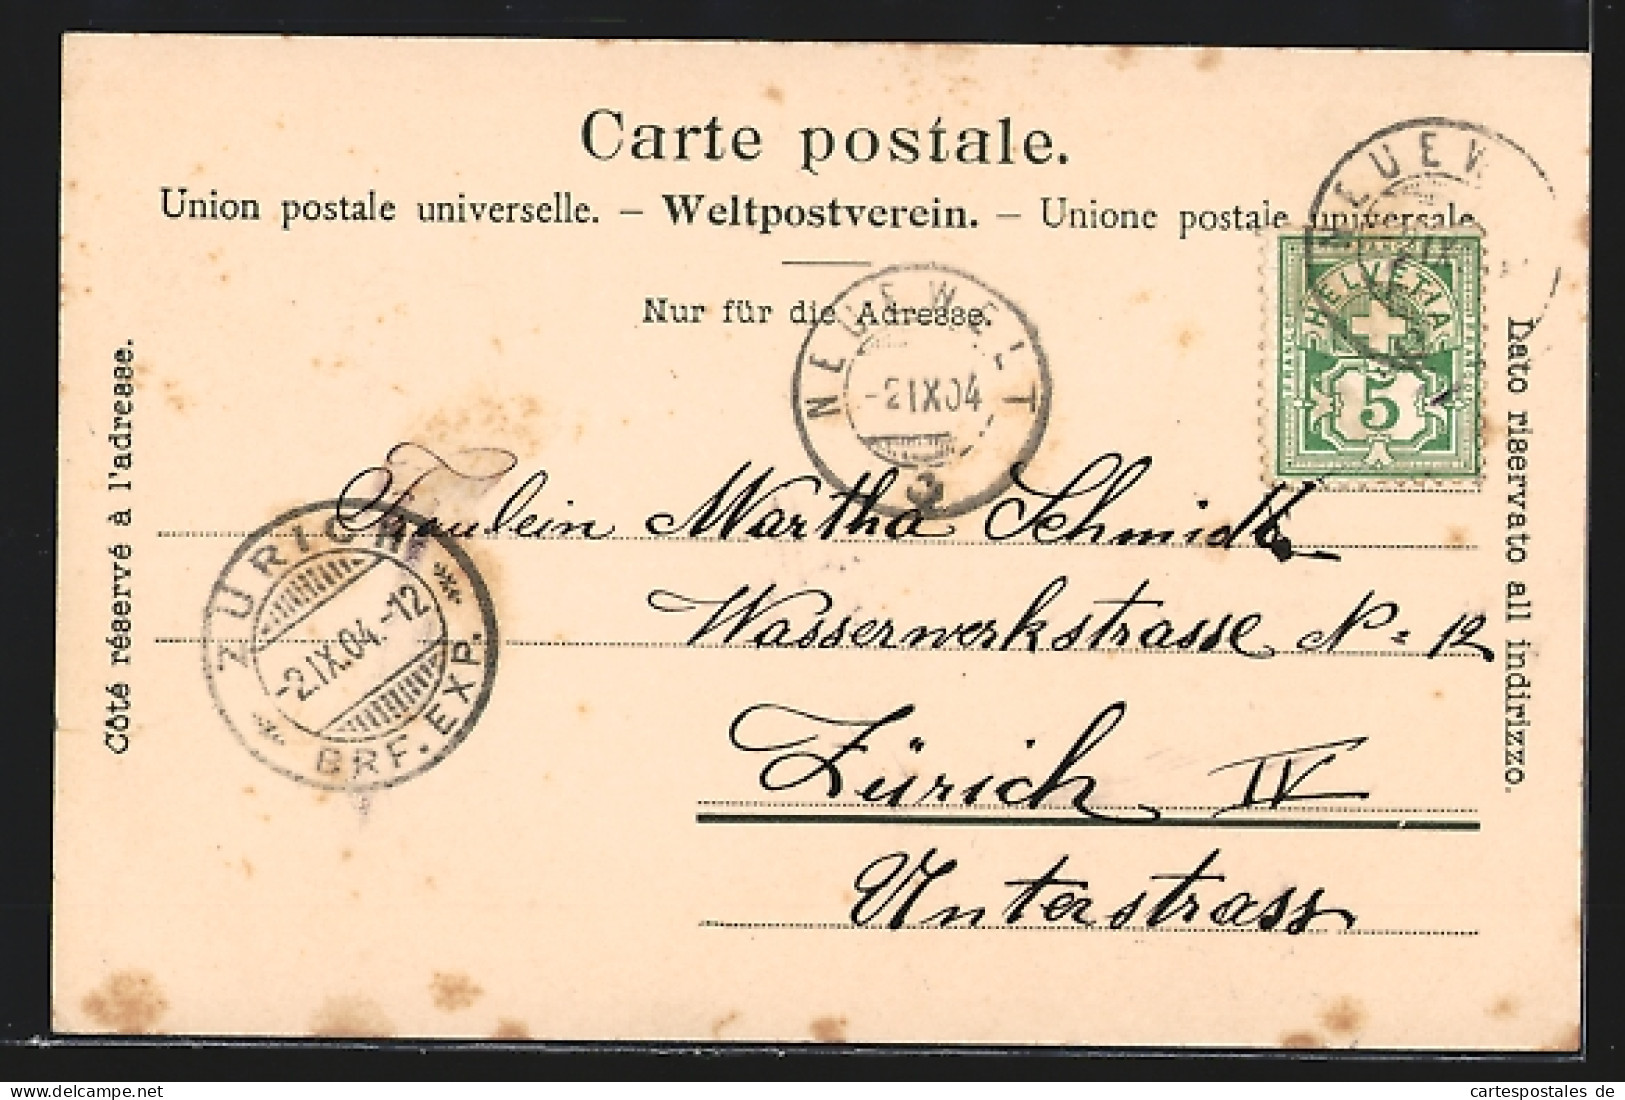 Carte postale.
Union postale universelle. – Weltpostverein. – Unione postale universale
Nur für die Adresse.
Côté réservé à l'adresse.
Lato riservato all indirizzo.
NEUEWELT
-2 IX 04
NEUEW
IX
HELVETIA
FRANCO
5
ZÜRICH
-2.IX.04.-12
BRF. EXP.
Fräulein Martha Schmidt
Wasserwerkstrasse No 12
Zürich IV
Unterstrass
postales-ak
cartespostales de